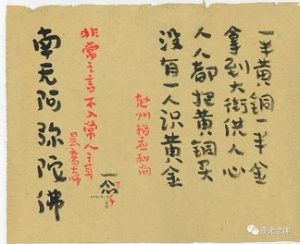 一半黄铜一半金
拿到大街供人心
人人都把黄铜买
没有一人识黄金
和尚
一念
非常之言不入常人之耳
昙鸾大师
南无阿弥陀佛